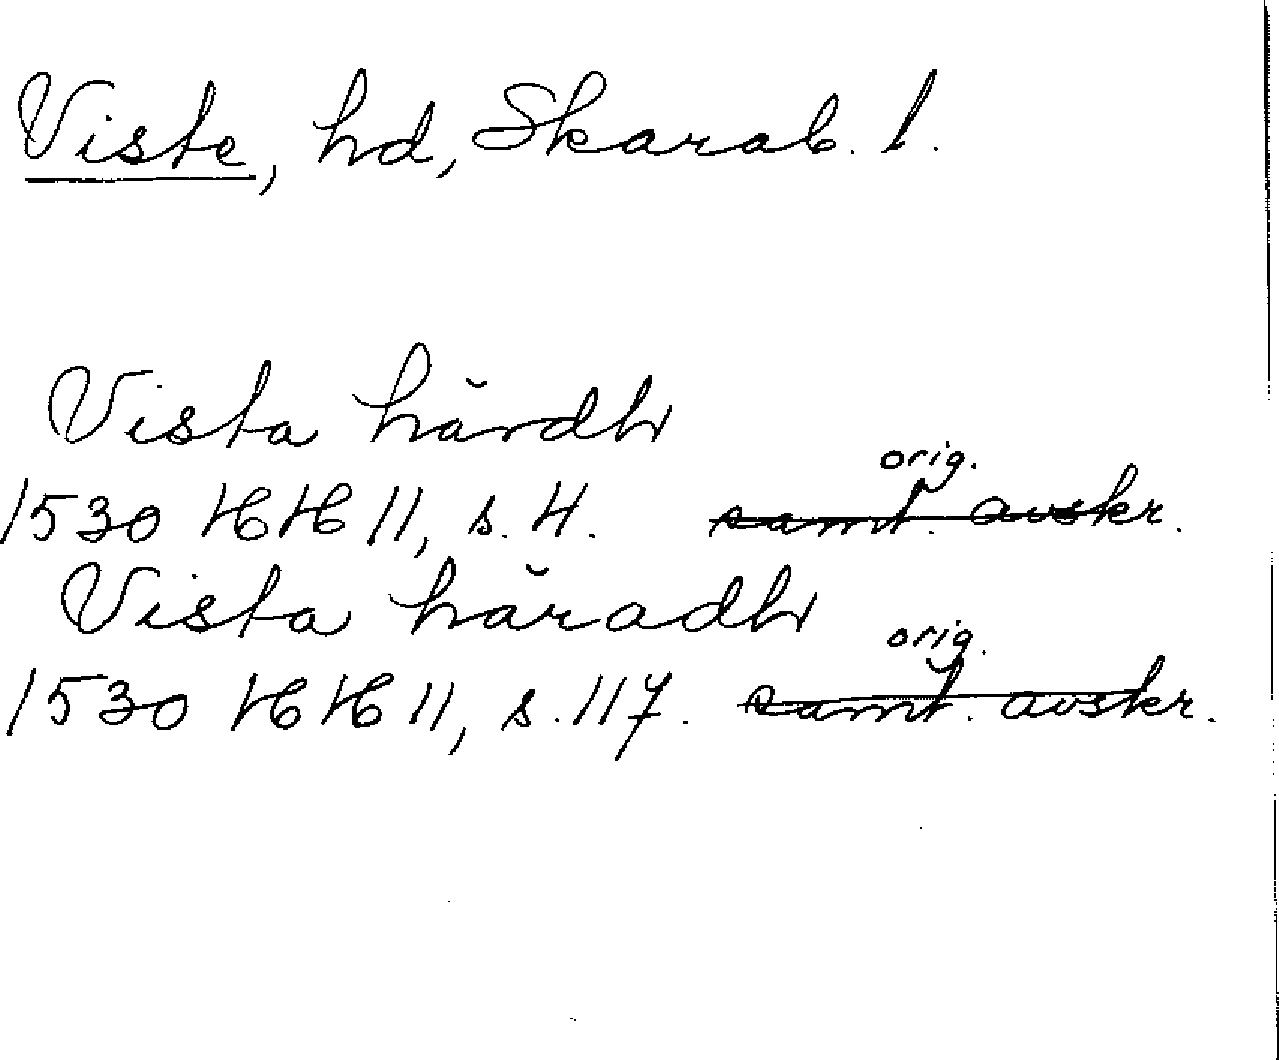 Viste, hd, Skarab. l.
Vista hărdh
orig.
1530 HH 11, s. 4. samt. avskr.
Vista hăradh
orig.
1530 HH 11, s. 117. samt. avskr.